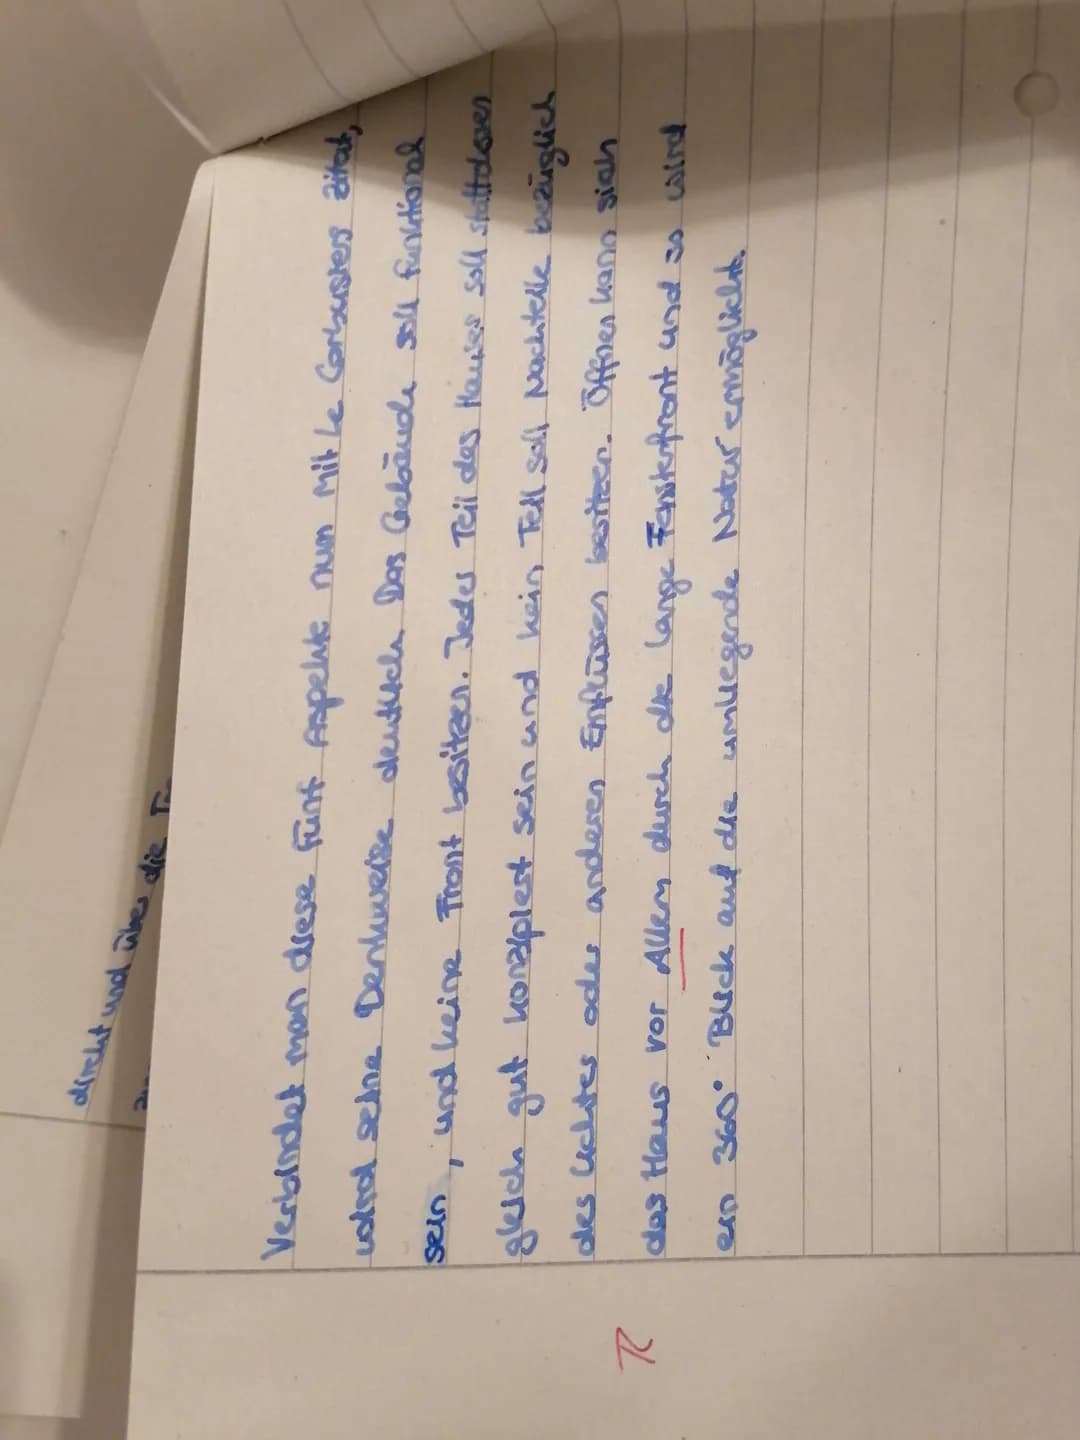 direkt und über die
Verbindet man diese Fünf Aspekte nun Mit Le Corbusiers Zitat,
wird seine Denkweise deutlich. Das Gebäude soll funktional
sein, und keine Front besitzen. Jeder Teil des Hauses soll stattdessen
gleich gut konzipiert sein und kein Teil soll Nachteile bezüglich
des Lichtes oder anderen Einflüssen besitzen. Öffnen kann sich
das Haus vor Allem durch die lange Fensterfront und so wird
ein 360° Blick auf die umliegende Natur ermöglicht.
R